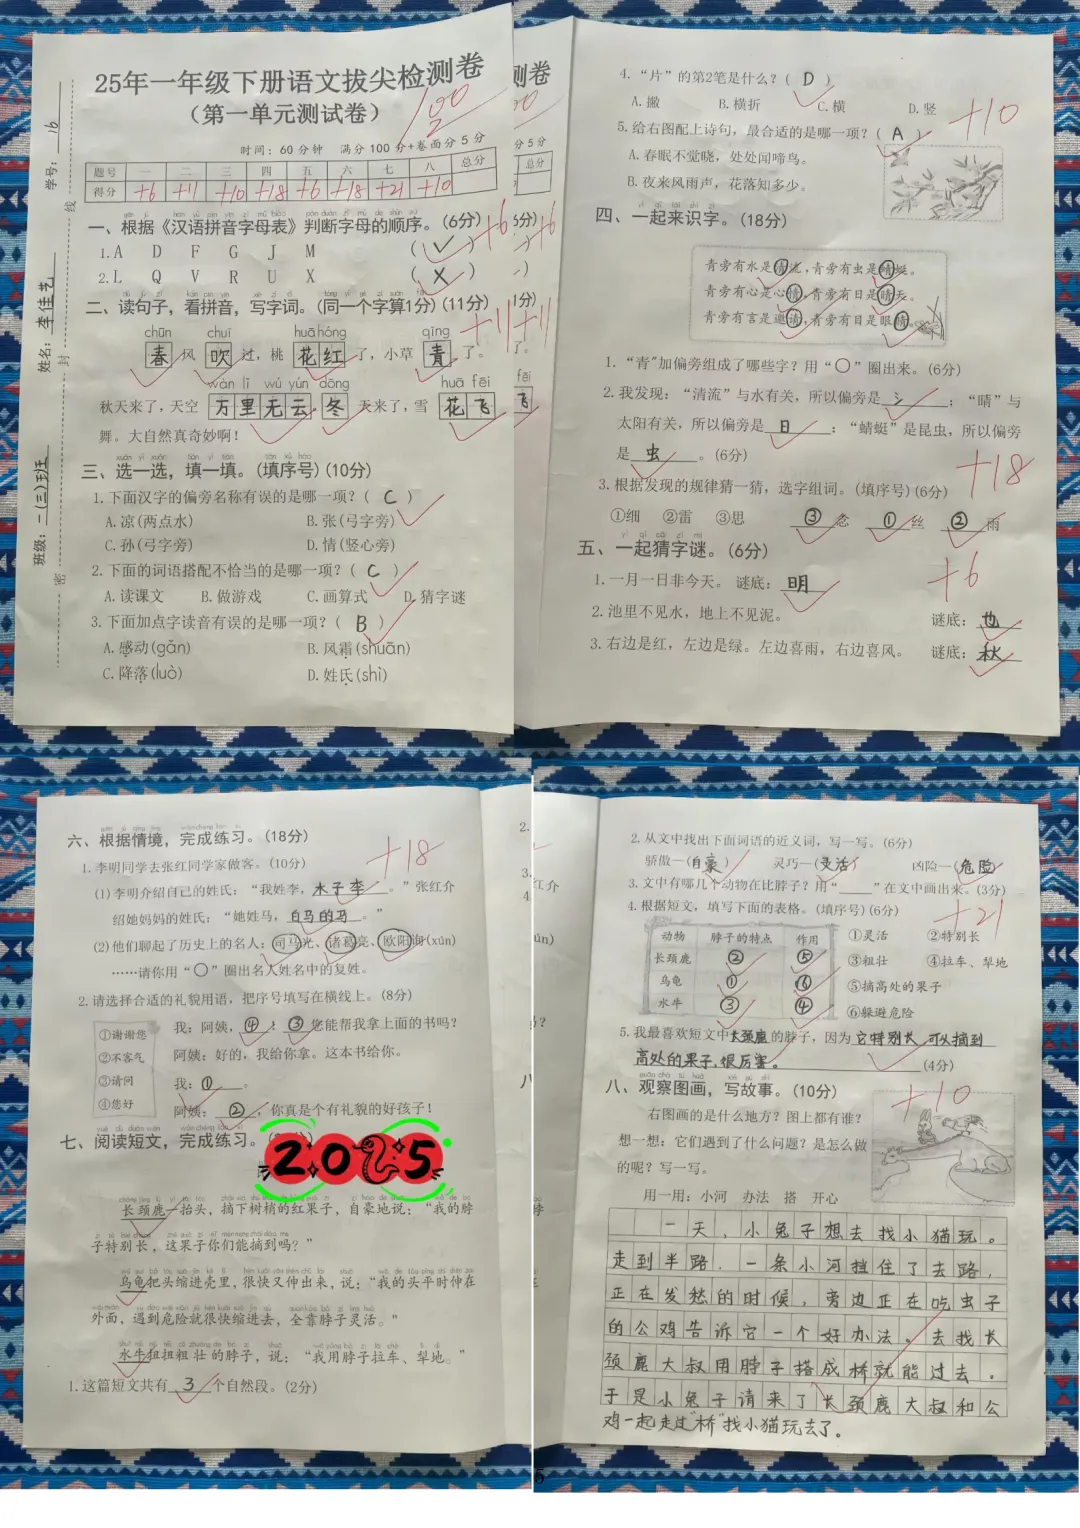 25年一年级下册语文拔尖检测卷
（第一单元测试卷）
100
2
时间：60分钟 满分100分+卷面分5分
题号 一 二 三 四 五 六 七 八 总分
得分 +6 +11 +10 +18 +6 +18 +21 +10
学号：16
姓名：李佳艺
班级：一(三)班
线
封
密
一、根据《汉语拼音字母表》判断字母的顺序。(6分) +6
1.A D F G J M （✓）
2.L Q V R U X （X）
二、读句子，看拼音，写字词。(同一个字算1分)(11分) +11
chūn chuī huā hóng qīng
春风吹过，桃花红了，小草青了。
wàn lǐ wú yún dōng huā fēi
秋天来了，天空万里无云冬天来了，雪花飞
舞。大自然真奇妙啊！
三、选一选，填一填。(填序号)(10分)
1.下面汉字的偏旁名称有误的是哪一项？（C）
A.凉(两点水) B.张(弓字旁)
C.孙(弓字旁) D.情(竖心旁)
2.下面的词语搭配不恰当的是哪一项？（C）
A.读课文 B.做游戏 C.画算式 D.猜字谜
3.下面加点字读音有误的是哪一项？（B）
A.感动(gǎn) B.风霜(shuān)
C.降落(luò) D.姓氏(shì)
4.“片”的第2笔是什么？（D）
A.撇 B.横折 C.横 D.竖
+10
5.给右图配上诗句，最合适的是哪一项？（A）
A.春眠不觉晓，处处闻啼鸟。
B.夜来风雨声，花落知多少。
四、一起来识字。(18分)
青旁有水是清流，青旁有虫是蜻蜓。
青旁有心是心情，青旁有日是晴天。
青旁有言是邀请，青旁有目是眼睛。
1.“青”加偏旁组成了哪些字？用“○”圈出来。(6分)
2.我发现：“清流”与水有关，所以偏旁是氵；“晴”与
太阳有关，所以偏旁是日；“蜻蜓”是昆虫，所以偏旁
是虫。(6分)
+18
3.根据发现的规律猜一猜，选字组词。(填序号)(6分)
①细 ②雷 ③思 ③念 ①丝 ②雨
五、一起猜字谜。(6分)
+6
1.一月一日非今天。 谜底：明
2.池里不见水，地上不见泥。 谜底：也
3.右边是红，左边是绿。左边喜雨，右边喜风。 谜底：秋
六、根据情境，完成练习。(18分)
+18
1.李明同学去张红同学家做客。(10分)
(1)李明介绍自己的姓氏：“我姓李，木子李。”张红介
绍她妈妈的姓氏：“她姓马，白马的马。”
(2)他们聊起了历史上的名人：司马光、诸葛亮、欧阳询(xún)
……请你用“○”圈出名人姓名中的复姓。
2.请选择合适的礼貌用语，把序号填写在横线上。(8分)
①谢谢您
②不客气
③请问
④您好
我：阿姨，④！③您能帮我拿上面的书吗？
阿姨：好的，我给你拿。这本书给你。
我：①。
阿姨：②，你真是个有礼貌的好孩子！
七、阅读短文，完成练习。
2025
长颈鹿一抬头，摘下树梢的红果子，自豪地说：“我的脖
子特别长，这果子你们能摘到吗？”
乌龟把头缩进壳里，很快又伸出来，说：“我的头平时伸在
外面，遇到危险就很快缩进去，全靠脖子灵活。”
水牛扭扭粗壮的脖子，说：“我用脖子拉车、犁地。”
1.这篇短文共有3个自然段。(2分)
2.从文中找出下面词语的近义词，写一写。(6分)
骄傲—(自豪) 灵巧—(灵活) 凶险—(危险)
3.文中有哪几个动物在比脖子？用“____”在文中画出来。(3分)
4.根据短文，填写下面的表格。(填序号)(6分)
+21
动物 脖子的特点 作用
长颈鹿 ② ⑤
乌龟 ① ⑥
水牛 ③ ④
①灵活 ②特别长
③粗壮 ④拉车、犁地
⑤摘高处的果子
⑥躲避危险
5.我最喜欢短文中长颈鹿的脖子，因为它特别长，可以摘到
高处的果子,很厉害。(4分)
八、观察图画，写故事。(10分)
+10
右图画的是什么地方？图上都有谁？
想一想：它们遇到了什么问题？是怎么做
的呢？写一写。
用一用：小河 办法 搭 开心
一天，小兔子想去找小猫玩。
走到半路，一条小河挡住了去路，
正在发愁的时候，旁边正在吃虫子
的公鸡告诉它一个好办法。去找长
颈鹿大叔用脖子搭成桥就能过去。
于是小兔子请来了长颈鹿大叔和公
鸡一起走过“桥”找小猫玩去了。